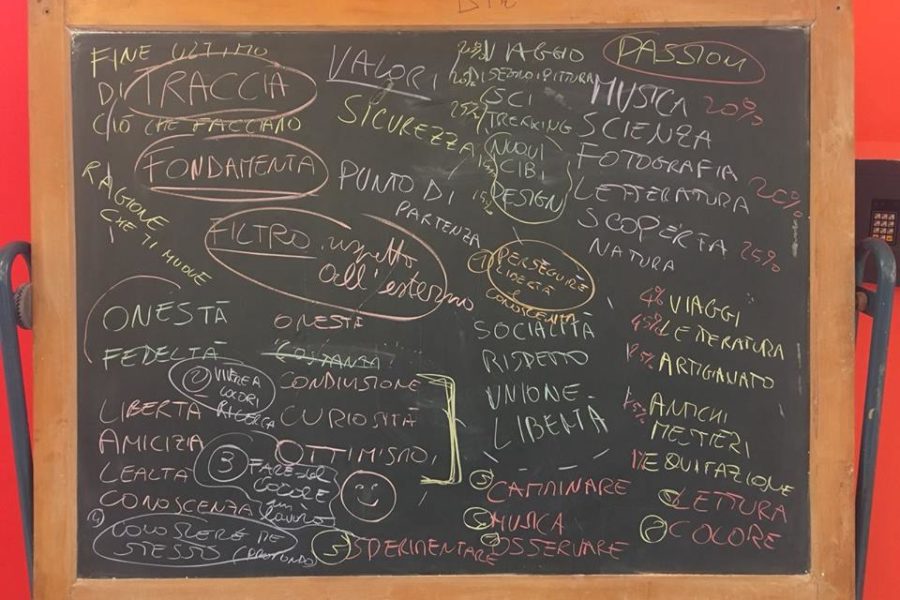 FINE ULTIMO
DI TRACCIA
CIÒ CHE FACCIAMO
FONDAMENTA
RAGIONE
CHE TI MUOVE
FILTRO rispetto
all'esterno
VALORI
SICUREZZA
PUNTO DI
PARTENZA
VIAGGIO
DISEGNO PITTURA
SCI
25% TREKKING
NUOVI
CIBI
15% DESIGN
PASSIONI
MUSICA 20%
SCIENZA
FOTOGRAFIA
LETTERATURA 20%
SCOPERTA
NATURA 25%
ONESTÀ
FEDELTÀ
LIBERTÀ
AMICIZIA
LEALTÀ
CONOSCENZA
4 CONOSCERE ME
STESSO (PROFONDO)
ONESTÀ
COSTANZA
CONDIVISIONE
CURIOSITÀ
OTTIMISMO
2 VIVERE A
COLORI
RICERCA
3 FARE del
COLORE
un
lavoro
5 SPERIMENTARE
1 PERSEGUIRE
LIBERTÀ
CONOSCENZA
SOCIALITÀ
RISPETTO
UNIONE
LIBERTÀ
VIAGGI
LETTERATURA
ARTIGIANATO
ANTICHI
MESTIERI
EQUITAZIONE
CAMMINARE
MUSICA
OSSERVARE
LETTURA
COLORE